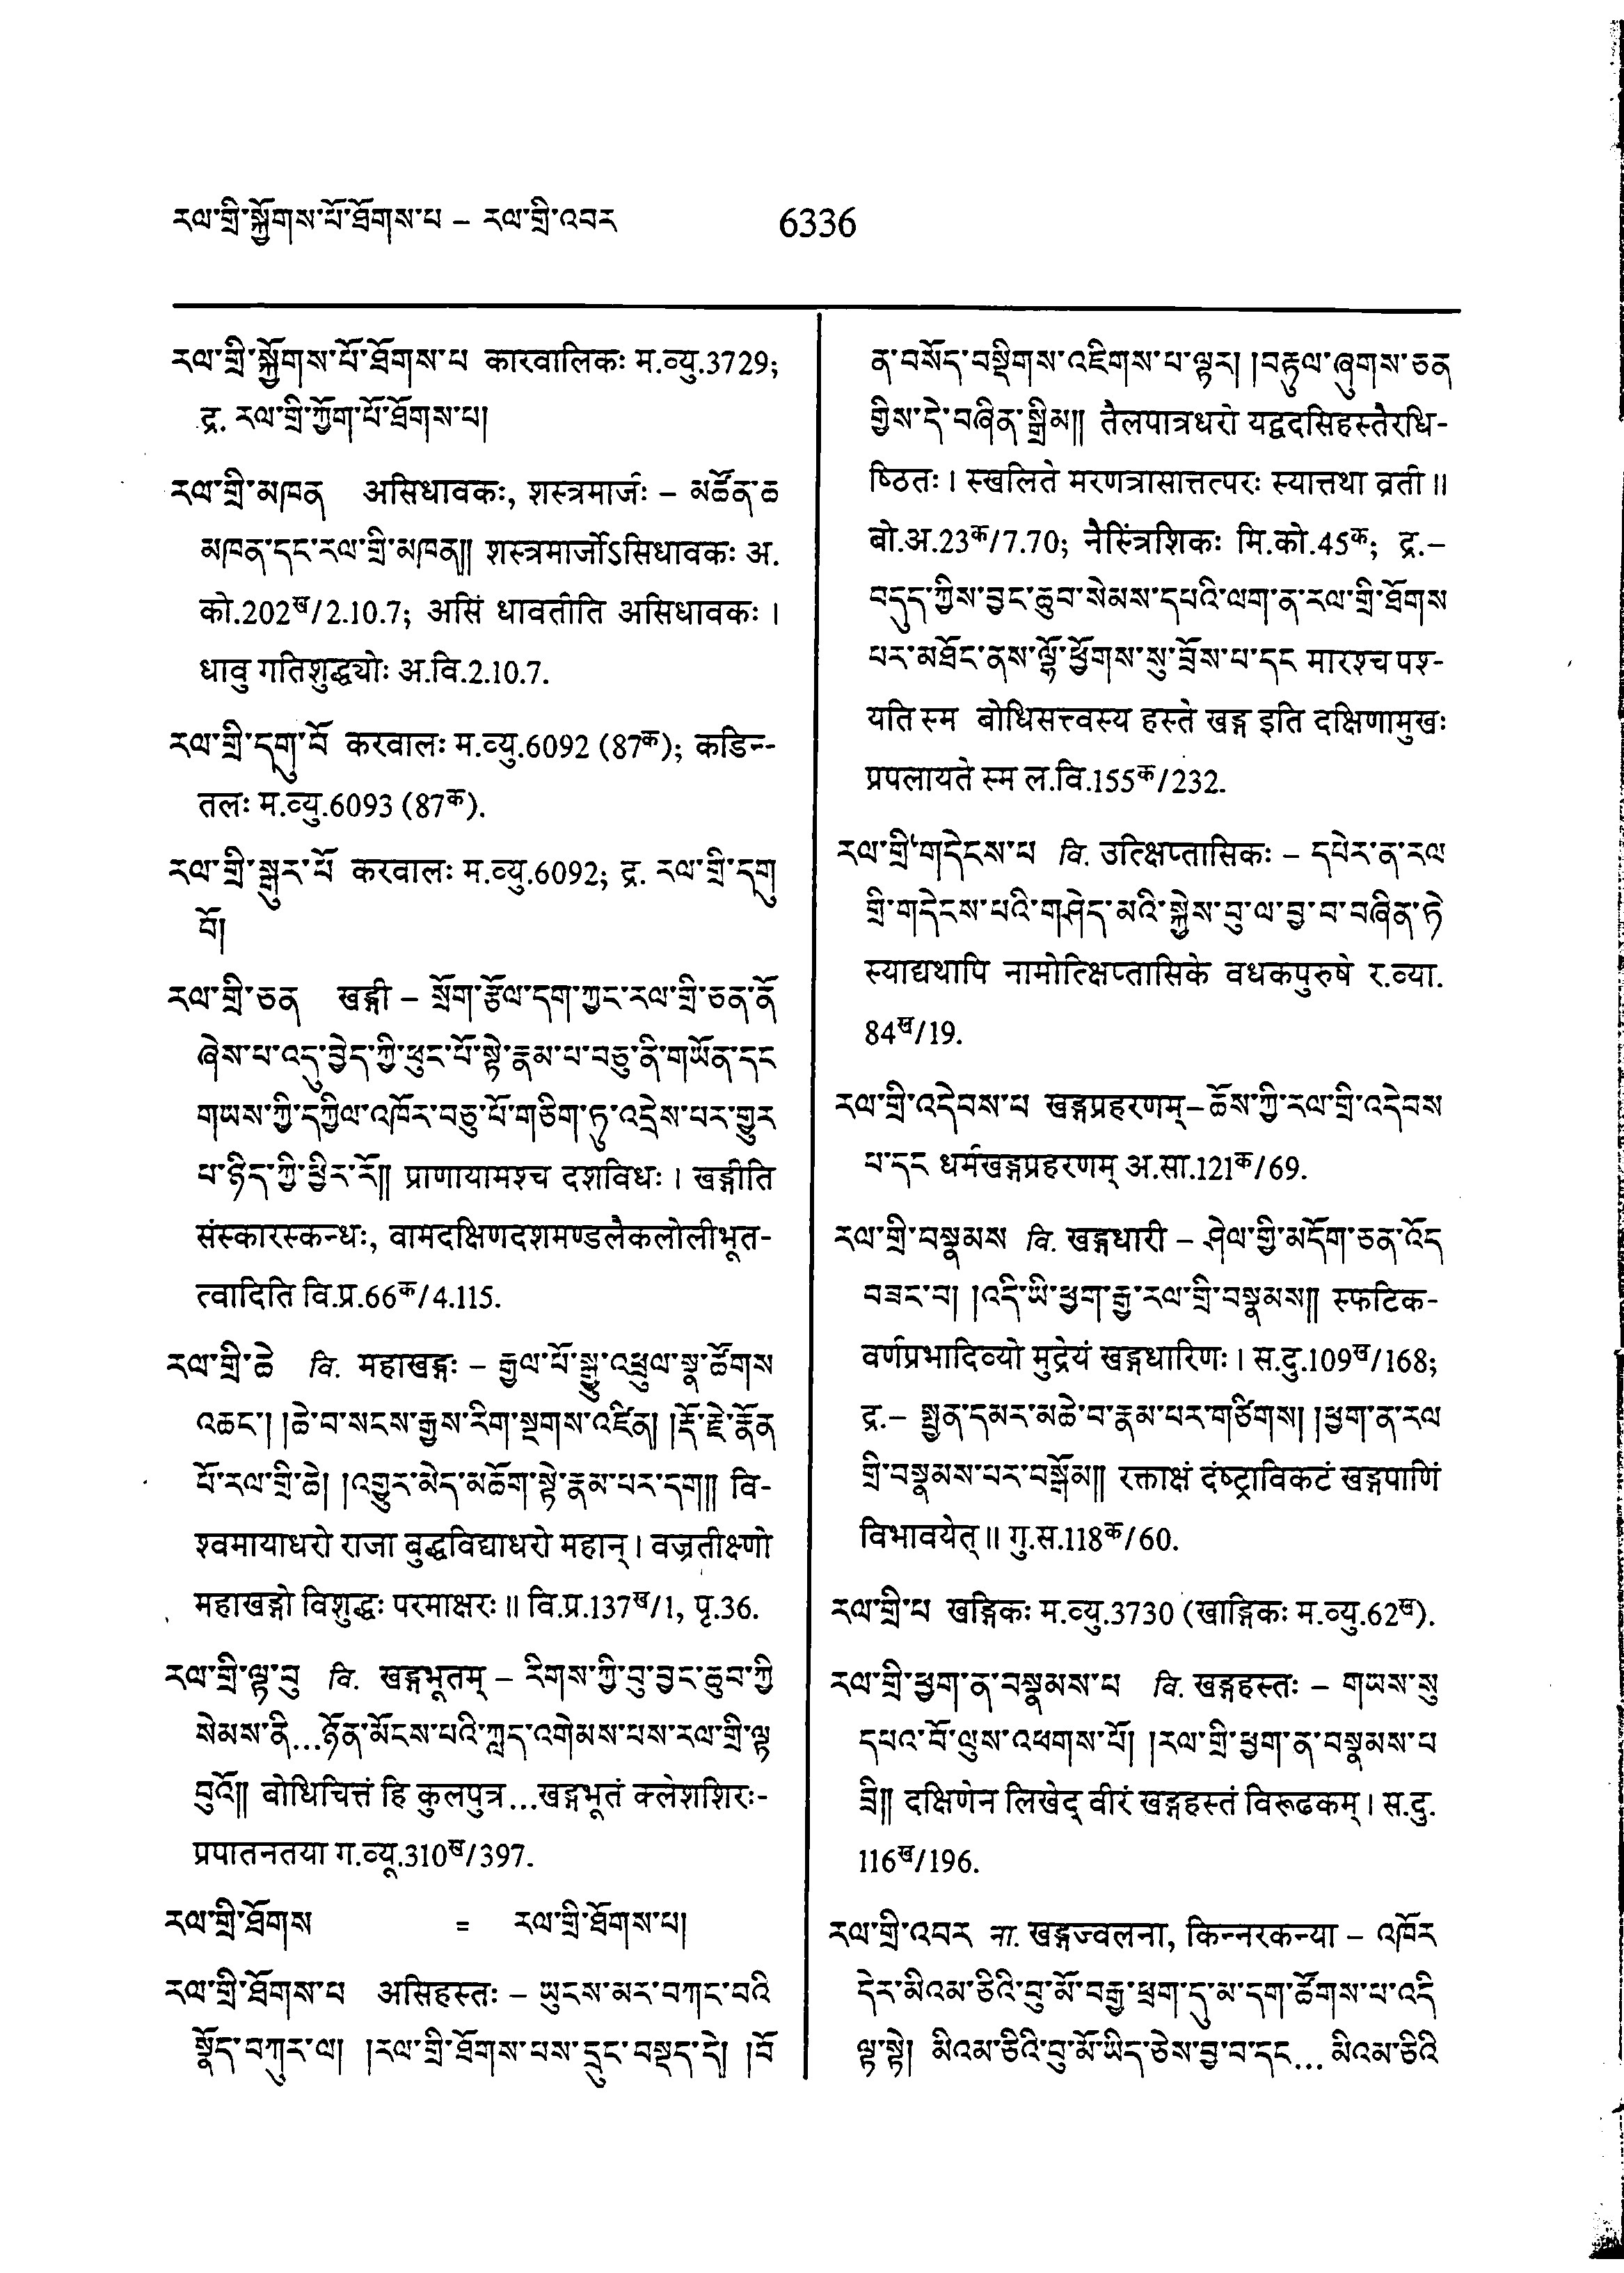 རལ་གྲི་སྐྱོགས་པོ་ཐོགས་པ – རལ་གྲི་འབར 6336
རལ་གྲི་སྐྱོགས་པོ་ཐོགས་པ कारवालिकः म.व्यु.3729;
द्र. རལ་གྲི་ཀྱོག་པོ་ཐོགས་པ།
རལ་གྲི་མཁན असिधावकः, शस्त्रमार्जः – མཚོན་ཆ
མཁན་དང་རལ་གྲི་མཁན།། शस्त्रमार्जोऽसिधावकः अ.
को.202ख/2.10.7; असिं धावतीति असिधावकः ।
धावु गतिशुद्ध्योः अ.वि.2.10.7.
རལ་གྲི་དགུ་བོ करवालः म.व्यु.6092 (87क); कडिन्-
तलः म.व्यु.6093 (87क).
རལ་གྲི་སྒུར་པོ करवालः म.व्यु.6092; द्र. རལ་གྲི་དགུ
བོ།
རལ་གྲི་ཅན खड्गी – སྲོག་རྩོལ་དག་ཀྱང་རལ་གྲི་ཅན་ནོ
ཞེས་པ་འདུ་བྱེད་ཀྱི་ཕུང་པོ་སྟེ་རྣམ་པ་བཅུ་ནི་གཡོན་དང
གཡས་ཀྱི་དཀྱིལ་འཁོར་བཅུ་པོ་གཅིག་ཏུ་འདྲེས་པར་གྱུར
པ་ཉིད་ཀྱི་ཕྱིར་རོ།། प्राणायामश्च दशविधः । खड्गीति
संस्कारस्कन्धः, वामदक्षिणदशमण्डलैकलोलीभूत-
त्वादिति वि.प्र.66क/4.115.
རལ་གྲི་ཆེ वि. महाखड्गः – རྒྱལ་པོ་སྒྱུ་འཕྲུལ་སྣ་ཚོགས
འཆང་། །ཆེ་བ་སངས་རྒྱས་རིག་སྔགས་འཛིན། །རྡོ་རྗེ་རྣོན
པོ་རལ་གྲི་ཆེ། །འགྱུར་མེད་མཆོག་སྟེ་རྣམ་པར་དག།། वि-
श्वमायाधरो राजा बुद्धविद्याधरो महान् । वज्रतीक्ष्णो
महाखड्गो विशुद्धः परमाक्षरः ॥ वि.प्र.137ख/1, पृ.36.
རལ་གྲི་ལྟ་བུ वि. खड्गभूतम् – རིགས་ཀྱི་བུ་བྱང་ཆུབ་ཀྱི
སེམས་ནི...ཉོན་མོངས་པའི་ཀླད་འགེམས་པས་རལ་གྲི་ལྟ
བུའོ།། बोधिचित्तं हि कुलपुत्र...खड्गभूतं क्लेशशिरः-
प्रपातनतया ग.व्यू.310ख/397.
རལ་གྲི་ཐོགས = རལ་གྲི་ཐོགས་པ།
རལ་གྲི་ཐོགས་པ असिहस्तः – ཡུངས་མར་བཀང་བའི
སྣོད་བཀུར་ལ། །རལ་གྲི་ཐོགས་པས་དྲུང་བསྡད་དེ། །བོ
ན་བསོད་བསྡིགས་འཇིགས་པ་ལྟར། །བརྟུལ་ཞུགས་ཅན
གྱིས་དེ་བཞིན་སྒྲིམ།། तैलपात्रधरो यद्वदसिहस्तैरधि-
ष्ठितः । स्खलिते मरणत्रासात्तत्परः स्यात्तथा व्रती ॥
बो.अ.23क/7.70; नैस्त्रिंशिकः मि.को.45क; द्र.–
བདུད་ཀྱིས་བྱང་ཆུབ་སེམས་དཔའི་ལག་ན་རལ་གྲི་ཐོགས
པར་མཐོང་ནས་ལྷོ་ཕྱོགས་སུ་བྲོས་པ་དང मारश्च पश्-
यति स्म बोधिसत्त्वस्य हस्ते खड्ग इति दक्षिणामुखः
प्रपलायते स्म ल.वि.155क/232.
རལ་གྲི་གདེངས་པ वि. उत्क्षिप्तासिकः – དཔེར་ན་རལ
གྲི་གདེངས་པའི་གཤེད་མའི་སྐྱེས་བུ་ལ་བྱ་བ་བཞིན་ཏེ
स्याद्यथापि नामोत्क्षिप्तासिके वधकपुरुषे र.व्या.
84ख/19.
རལ་གྲི་འདེབས་པ खड्गप्रहरणम् – ཆོས་ཀྱི་རལ་གྲི་འདེབས
པ་དང धर्मखड्गप्रहरणम् अ.सा.121क/69.
རལ་གྲི་བསྣམས वि. खड्गधारी – ཤེལ་གྱི་མདོག་ཅན་འོད
བཟང་བ། །འདི་ཡི་ཕྱག་རྒྱ་རལ་གྲི་བསྣམས།། स्फटिक-
वर्णप्रभादिव्यो मुद्रेयं खड्गधारिणः । स.दु.109ख/168;
द्र.– སྤྱན་དམར་མཆེ་བ་རྣམ་པར་གཙིགས། །ཕྱག་ན་རལ
གྲི་བསྣམས་པར་བསྒོམ།། रक्ताक्षं दंष्ट्राविकटं खड्गपाणिं
विभावयेत् ॥ गु.स.118क/60.
རལ་གྲི་པ खड्गिकः म.व्यु.3730 (खाङ्गिकः म.व्यु.62ख).
རལ་གྲི་ཕྱག་ན་བསྣམས་པ वि. खड्गहस्तः – གཡས་སུ
དཔའ་བོ་ལུས་འཕགས་པོ། །རལ་གྲི་ཕྱག་ན་བསྣམས་པ
བྲི།། दक्षिणेन लिखेद् वीरं खड्गहस्तं विरूढकम् । स.दु.
116ख/196.
རལ་གྲི་འབར ना. खड्गज्वलना, किन्नरकन्या – འཁོར
དེར་མིའམ་ཅིའི་བུ་མོ་བརྒྱ་ཕྲག་དུ་མ་དག་ཚོགས་པ་འདི
ལྟ་སྟེ། མིའམ་ཅིའི་བུ་མོ་ཡིད་ཅེས་བྱ་བ་དང... མིའམ་ཅིའི